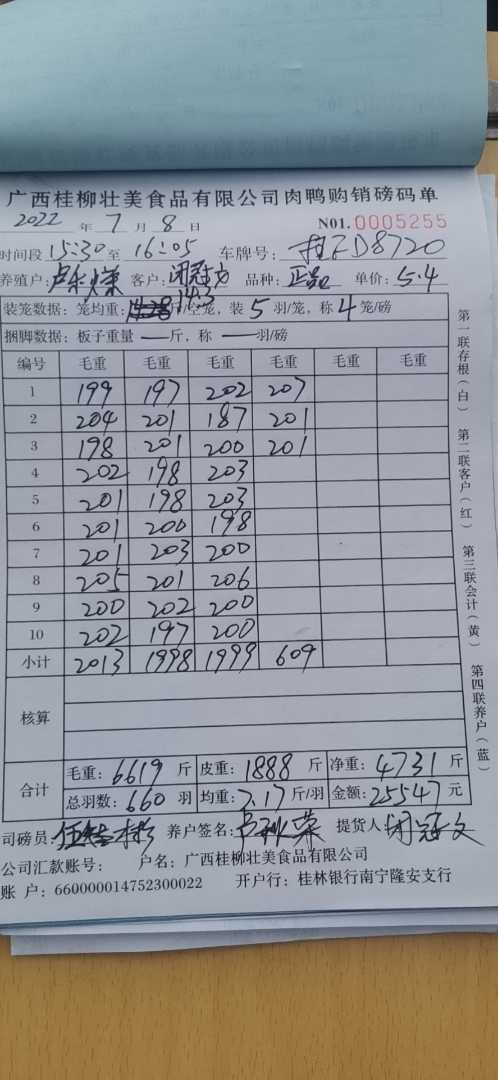 广西桂柳壮美食品有限公司肉鸭购销磅码单
2022 年 7 月 8 日 N01.0005255
时间段 15:30 至 16:05 车牌号: 桂FD8720
养殖户: 客户: 闭冠文 品种: 单价: 5.4
装笼数据: 笼均重: 14.3 斤/空笼, 装 5 羽/笼, 称 4 笼/磅
捆脚数据: 板子重量 — 斤, 称 — 羽/磅
编号 毛重 毛重 毛重 毛重 毛重 毛重
1 199 197 202 207
2 204 201 187 201
3 198 201 200 201
4 202 198 203
5 201 198 203
6 201 200 198
7 201 203 200
8 205 201 206
9 200 202 200
10 202 197 200
小计 2013 1998 1999 609
核算
合计 毛重: 6619 斤 皮重: 1888 斤 净重: 4731 斤
总羽数: 660 羽 均重: 7.17 斤/羽 金额: 25547 元
司磅员 养户签名: 提货人 闭冠文
公司汇款账号: 户名: 广西桂柳壮美食品有限公司
账 户: 660000014752300022 开户行: 桂林银行南宁隆安支行
第一联存根(白) 第二联客户(红) 第三联会计(黄) 第四联养户(蓝)